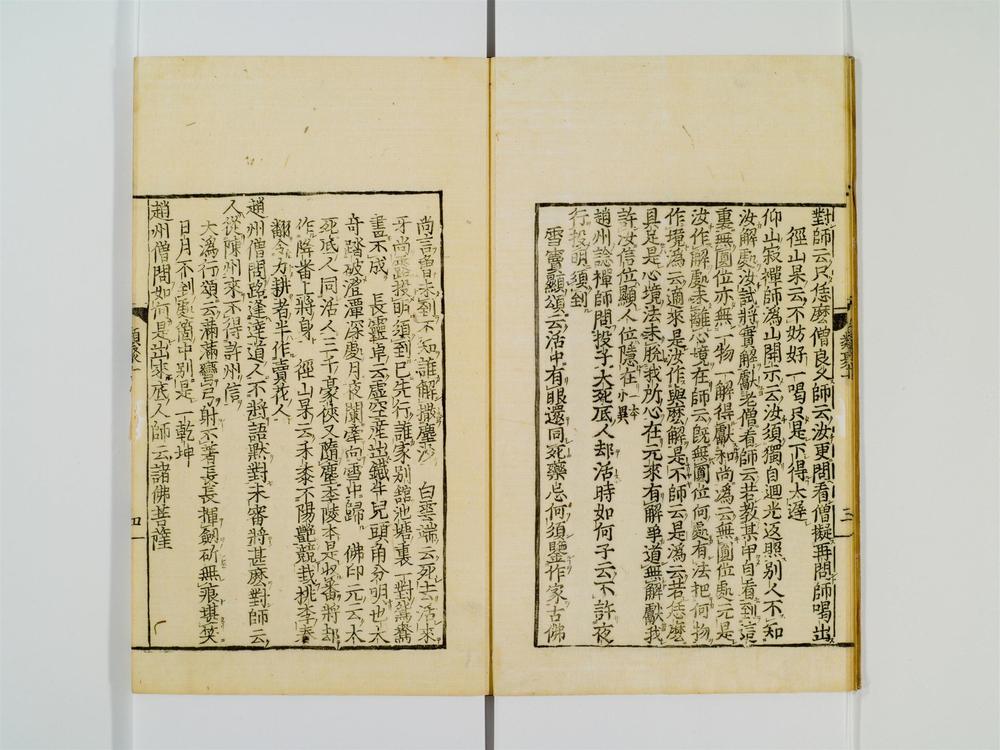 對師云只恁麼僧良久師云汝更問看僧擬再問師喝出
徑山杲云不妨好一喝只是下得太遲
仰山寂禪師溈山開示云汝須獨自迴光返照別人不知
汝解處汝試將實解獻老僧看師云若教某甲自看到這
裏無圓位亦無一物一解得獻和尚溈云無圓位處元是
汝作解處未離心境在師云既無圓位何處有法把何物
作境溈云適來是汝作與麼解是不師云是溈云若恁麼
具足是心境法未脫我所心在元來有解爭道無解獻我
許汝信位顯人位隱在一本小異
趙州諗禪師問投子大死底人却活時如何子云不許夜
行投明須到
雪竇顯頌云活中有眼還同死藥忌何須鑒作家古佛
尚言曾未到不知誰解撒塵沙 白雲端云死去活來
牙尚露投明須到已先行誰家別舘池塘裏一對鴛鴦
畫不成 長靈卓云虛空産出鐵牛兒頭角分明也太
奇踏破澄潭深處月夜闌牽向雪中歸 佛印元云大
死底人同活人三千豪俠又隨塵李陵本是收番將却
作降番上將身 徑山杲云禾黍不陽艷競栽桃李春
翻令力耕者半作賣花人
趙州僧問路逢達道人不將語默對未審將甚麼對師云
人從陳州來不得許州信
大溈行頌云滿滿彎弓射不著長長揮劍斫無痕堪笑
日月不到處箇中別是一乾坤
趙州僧問如何是出來底人師云諸佛菩薩
三
四